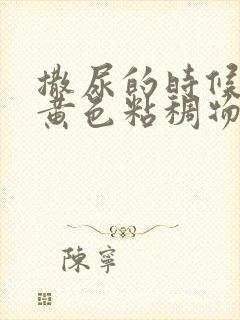 撒尿的時候
黃色粘稠物
陳寧